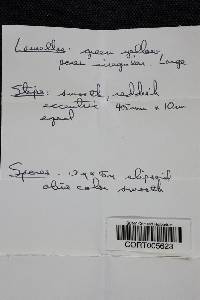 Lamellae: green yellow
pores irregular. Large
Stipe: smooth, reddish
eccentric 45mm x 10mm
equal
Spores. x 5m elipsoid
olive color smooth
CORT005623